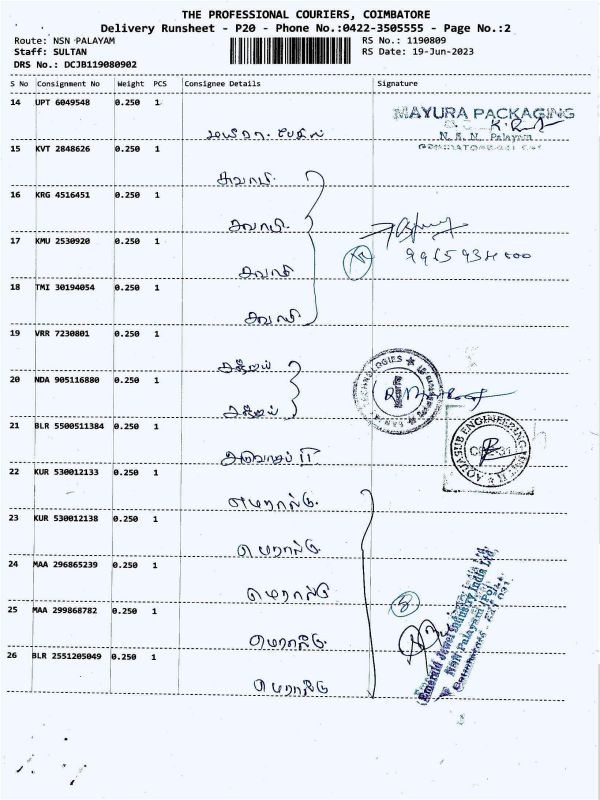 THE PROFESSIONAL COURIERS, COIMBATORE
Delivery Runsheet - P20 - Phone No.:0422-3505555 - Page No.:2
Route: NSN PALAYAM
RS No.: 1190809
Staff: SULTAN
RS Date: 19-Jun-2023
DRS No.: DCJB119080902
S No Consignment No Weight PCS Consignee Details Signature
14 UPT 6049548 0.250 1
MAYURA PACKAGING
N. S. N. Palayam
15 KVT 2848626 0.250 1
சுவாமி
16 KRG 4516451 0.250 1
சுவாமி
17 KMU 2530920 0.250 1
சுவாமி
18 TMI 30194054 0.250 1
சுவாமி
19 VRR 7230801 0.250 1
20 NDA 905116880 0.250 1
TECHNOLOGIES
Security
21 BLR 5500511384 0.250 1
AQUASUB ENGINEERING UNIT II
22 KUR 530012133 0.250 1
எமரால்டு
23 KUR 530012138 0.250 1
எமரால்டு
24 MAA 296865239 0.250 1
எமரால்டு
8
25 MAA 299868782 0.250 1
எமரால்டு
26 BLR 2551205049 0.250 1
எமரால்டு
Emerald Jewel Industry India Ltd,
NSN Palayam (Po),